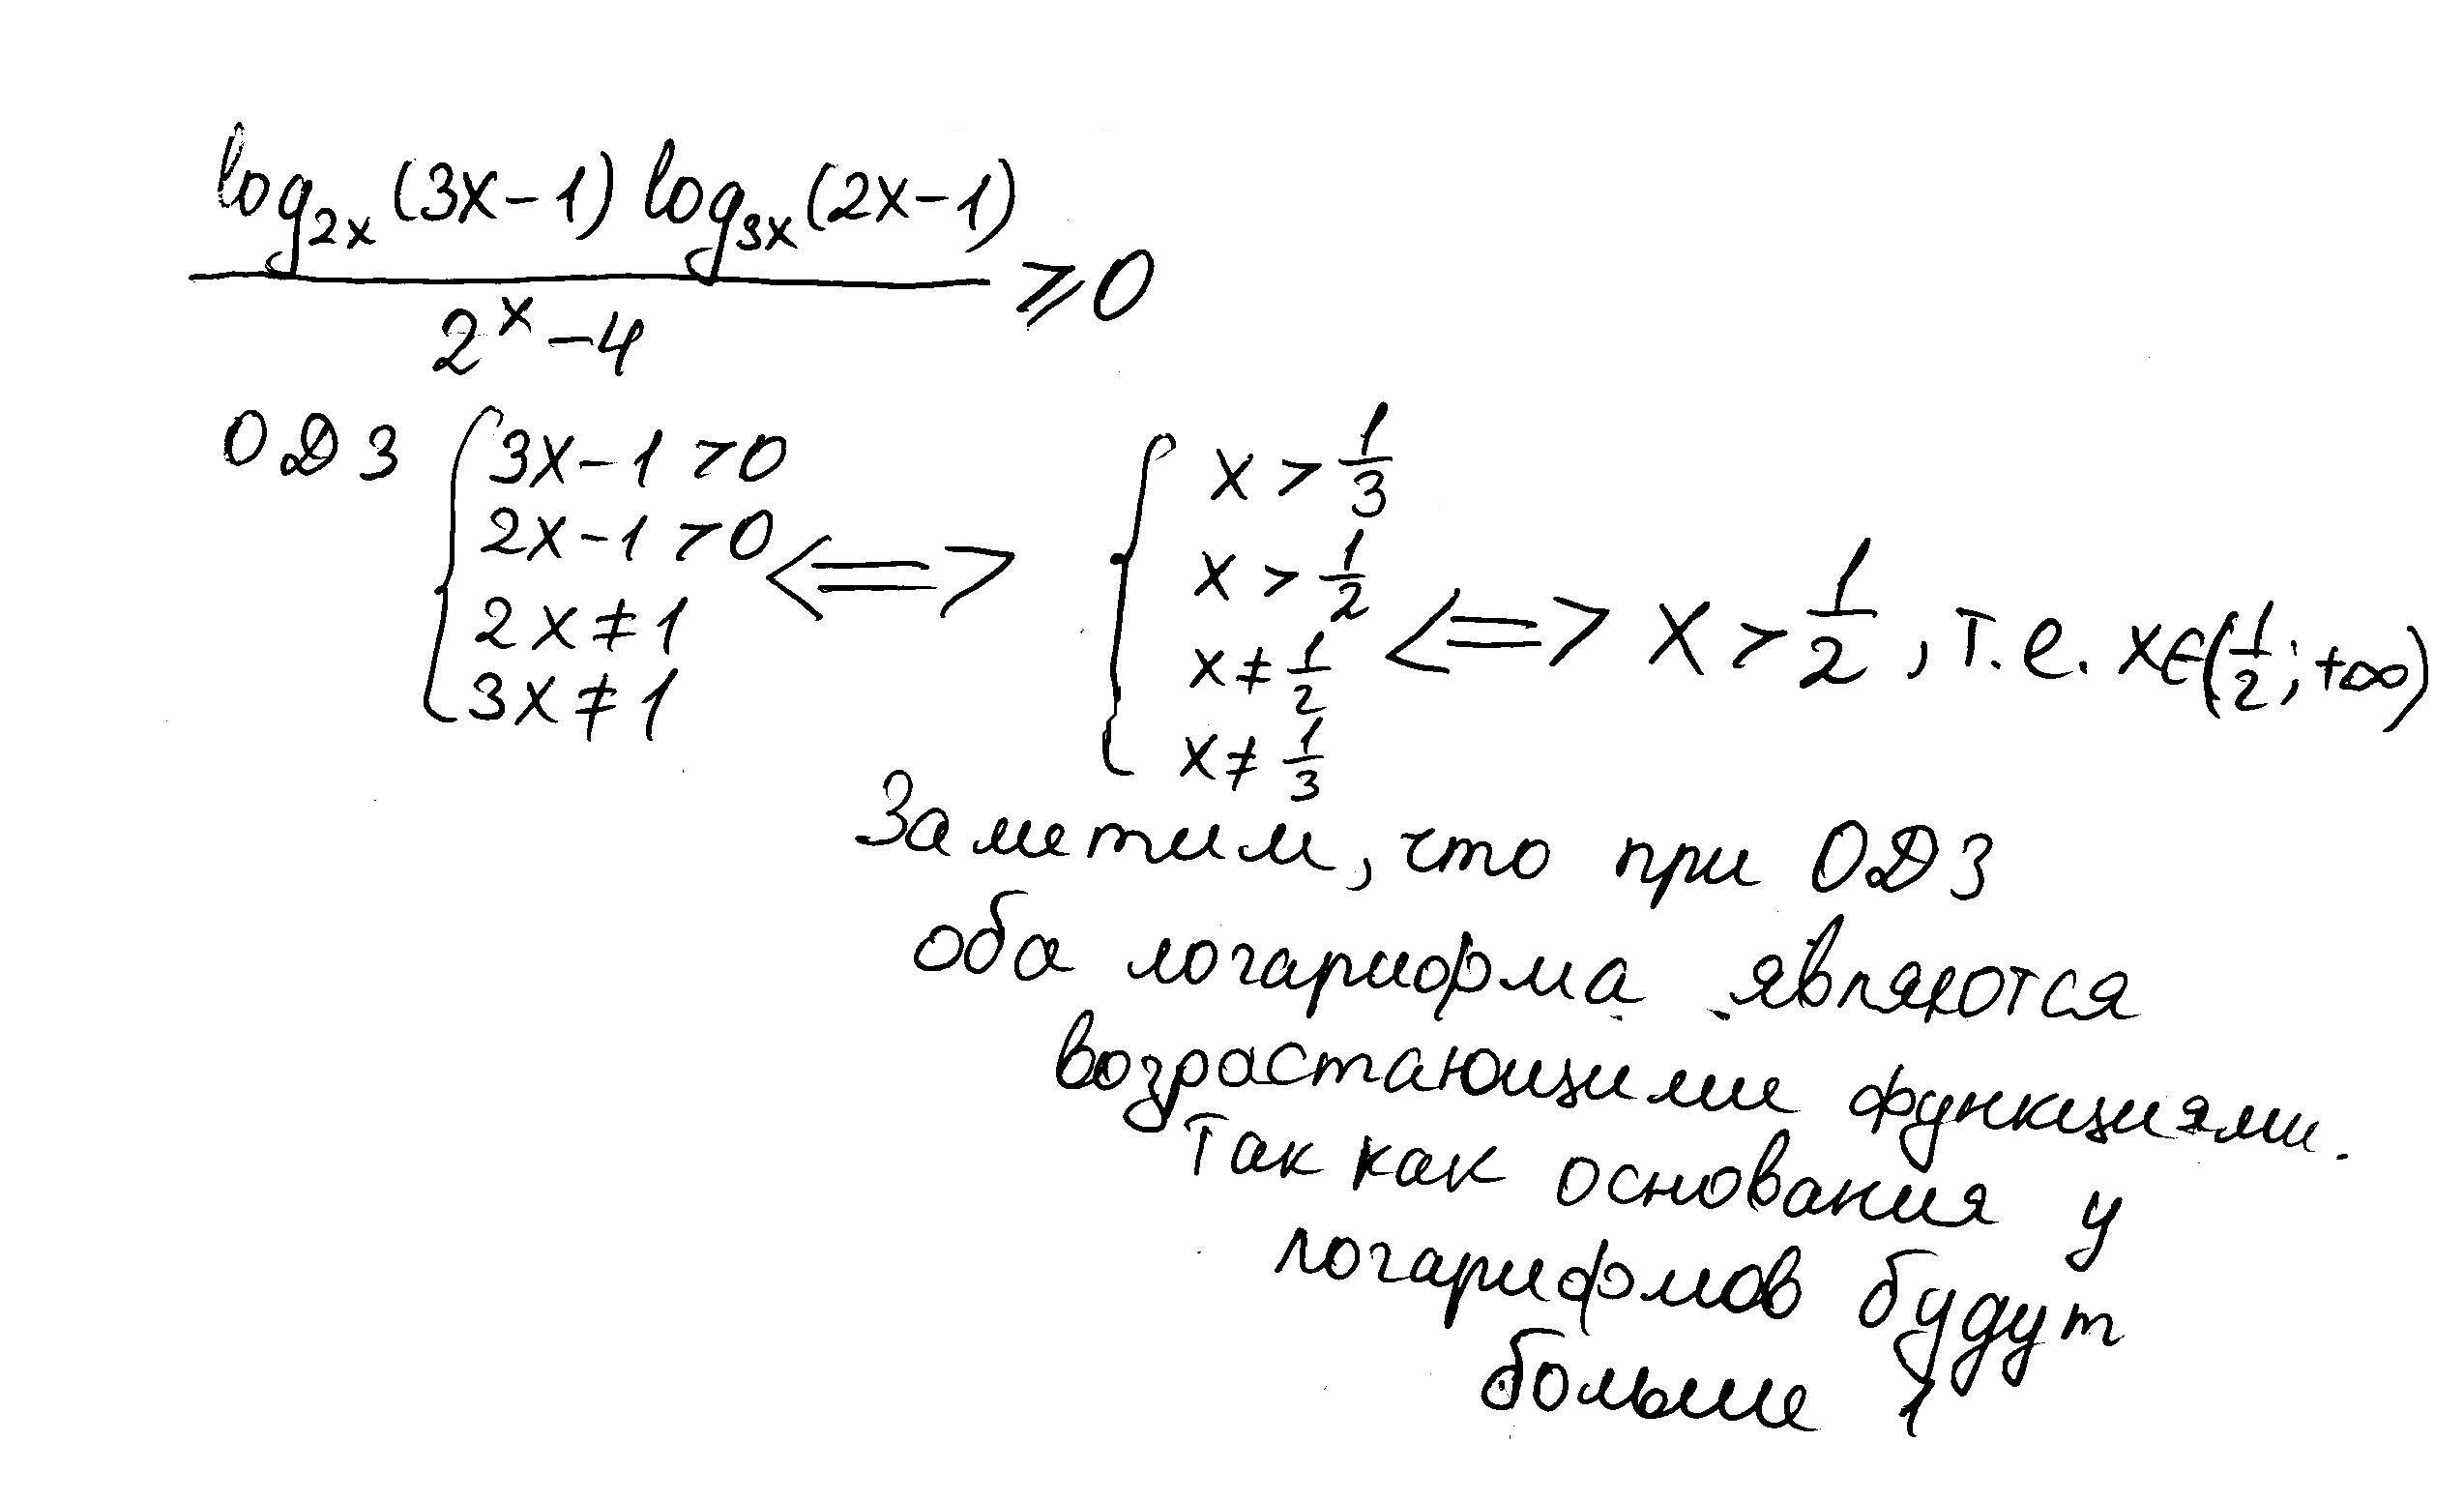 log₂ₓ(3x-1) log₃ₓ(2x-1)
———————————— ⩾ 0
2ˣ - 4
ОДЗ { 3x-1 > 0 ; 2x-1 > 0 ; 2x ≠ 1 ; 3x ≠ 1 <=> { x > 1/3 ; x > 1/2 ; x ≠ 1/2 ; x ≠ 1/3 <=> x > 1/2, т.е. x∈(1/2; +∞)
Заметим, что при ОДЗ
оба логарифма являются
возрастающими функциями.
Так как основания у
логарифмов будут
больше 1